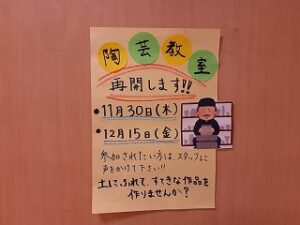 陶芸教室
再開します!!
•11月30日(木)
•12月15日(金)
参加されたい方は、スタッフに
声をかけて下さい!!
土にふれて、すてきな作品を
作りませんか?